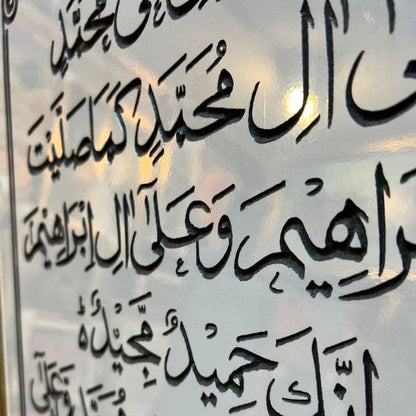 مُحَمَّدٍ
اٰلِ مُحَمَّدٍ كَمَا صَلَّيْتَ
بْرَاهِيْمَ وَعَلٰۤى اٰلِ اِبْرَاهِيْمَ
اِنَّكَ حَمِيْدٌ مَّجِيْدٌؕ
وَّعَلٰۤى